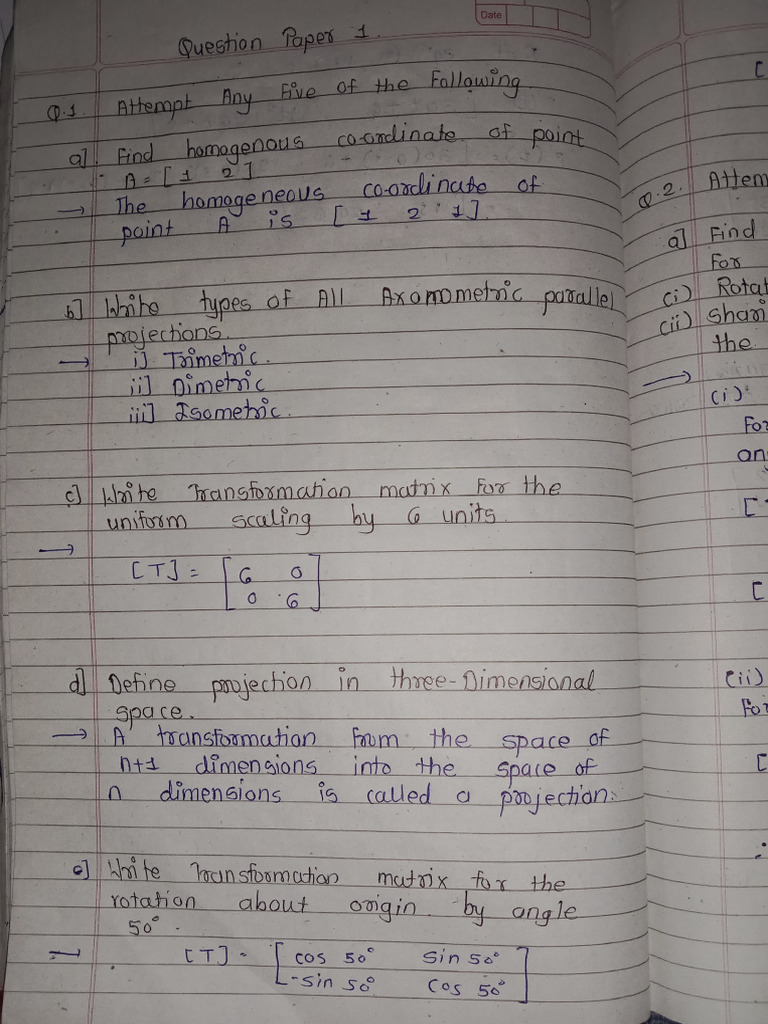 Date
Question Paper 1.
Q.1. Attempt Any Five of the Following
a] Find homogenous co-ordinate of point
A = [ 1 2 ]
→ The homogeneous co-ordinate of
point A is [ 1 2 1 ].
b] Write types of All Axonometric parallel
projections.
→ i] Trimetric.
ii] Dimetric
iii] Isometric.
c] Write Transformation matrix for the
uniform scaling by 6 units.
→
[T] = [ 6 0
0 6 ]
d] Define projection in three-Dimensional
space.
→ A transformation from the space of
n+1 dimensions into the space of
n dimensions is called a projection.
e] Write Transformation matrix for the
rotation about origin by angle
50°.
→ [T] = [ cos 50° sin 50°
-sin 50° cos 50° ]
[
Q.2. Attem
a] Find
For
(i) Rotat
(ii) Shari
the
→
(i)
For
ang
[
[
(ii)
For
[
∴